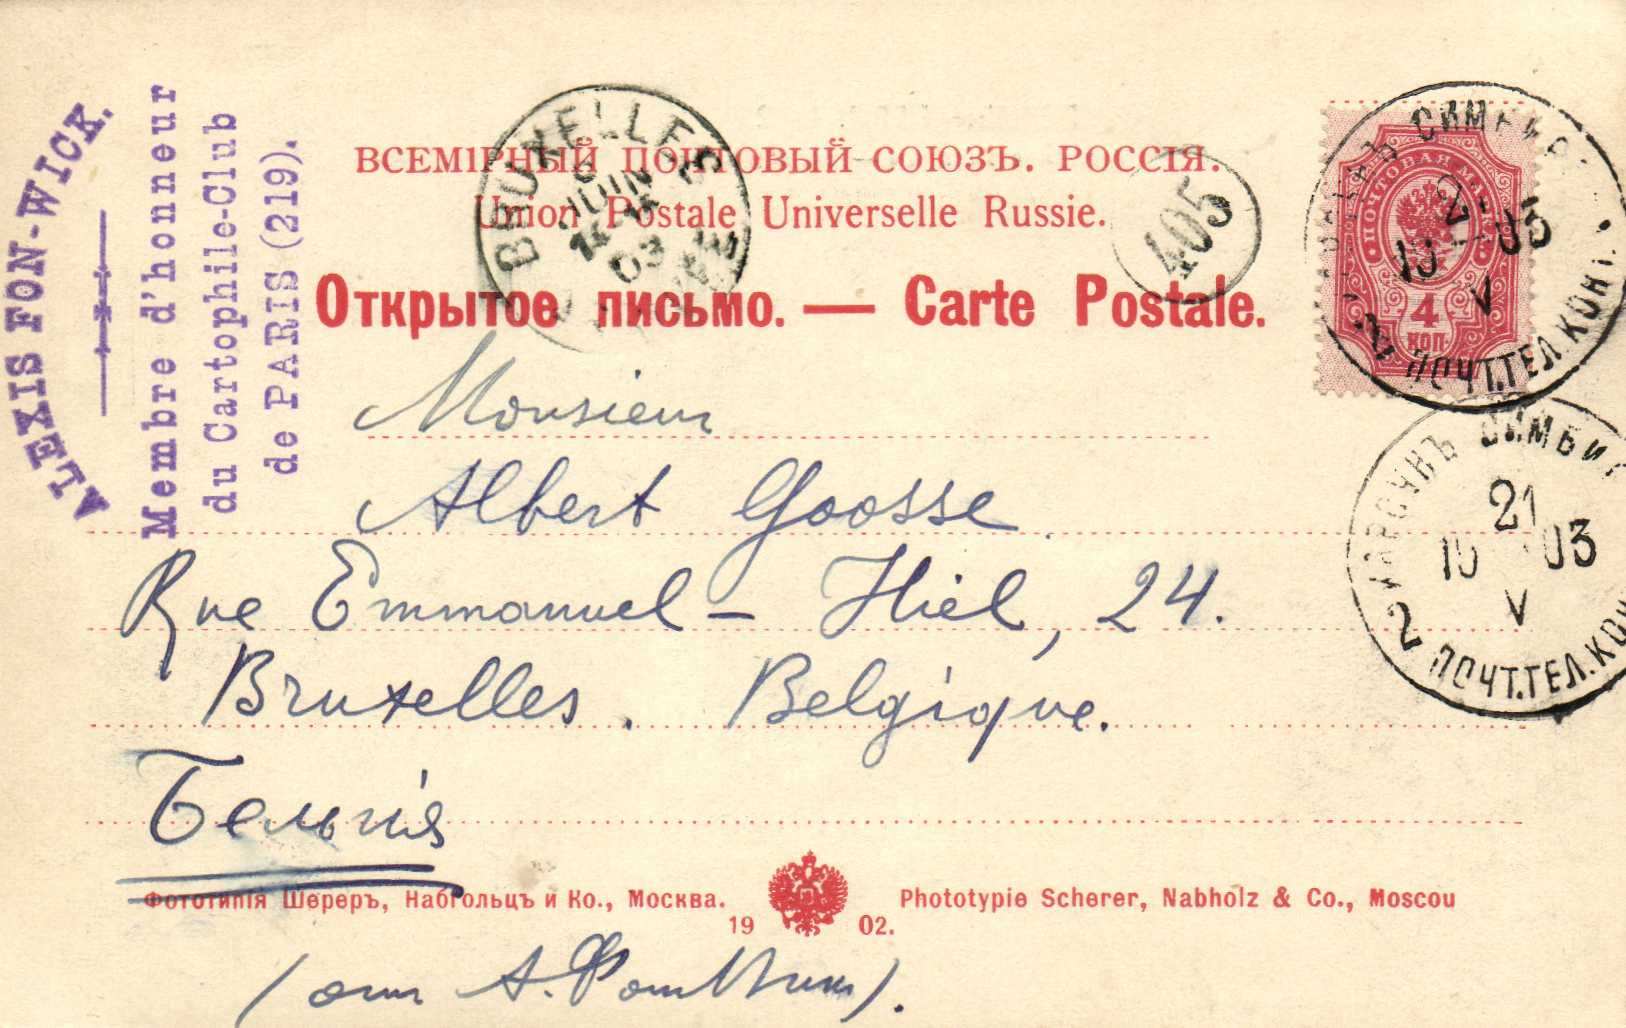 ALEXIS FON-WICK.
Membre d'honneur
du Cartophile-Club
de PARIS (219).
ВСЕМІРНЫЙ ПОЧТОВЫЙ СОЮЗЪ. РОССІЯ.
Union Postale Universelle Russie.
Открытое письмо. — Carte Postale.
BRUXELLES
6
JUIN
03
405
ПОЧТОВАЯ М.
4
КОП.
СИМБИР
03
V
2 ПОЧТ.ТЕЛ.КОНТ.
Monsieur
Albert Goosse
Rue Emmanuel – Hiel, 24.
Bruxelles. Belgique.
Бельгія
КАРСУНЪ СИМБИР
21
10 03
V
2 ПОЧТ.ТЕЛ.КОН
Фототипія Шереръ, Набгольцъ и Ко., Москва.
Phototypie Scherer, Nabholz & Co., Moscou
19 02.
(отъ А. Фонъ Викъ).